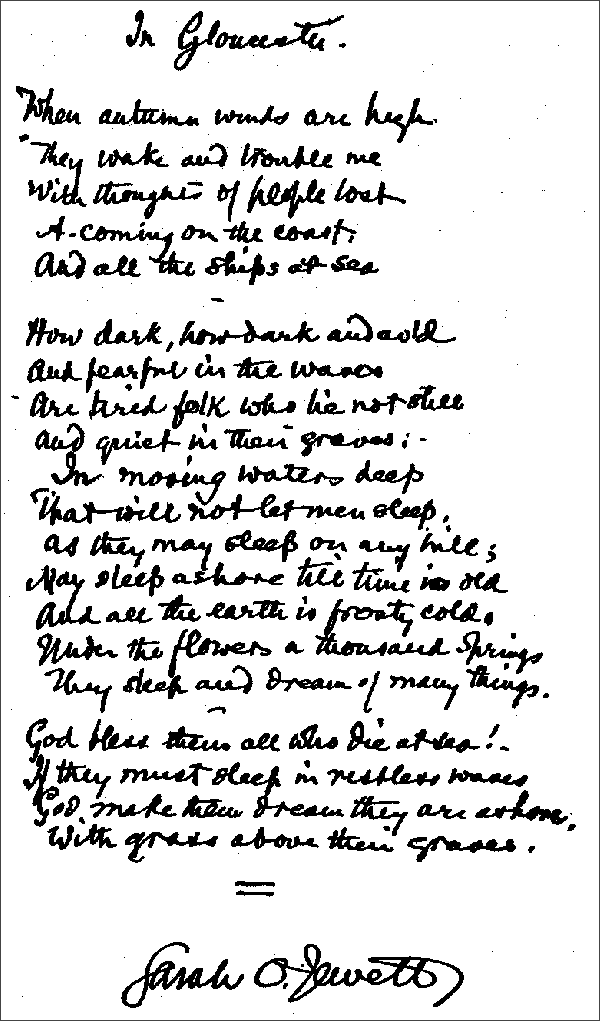 In Gloucester.
When autumn winds are high
They wake and trouble me
With thoughts of people lost
A-coming on the coast,
And all the ships at sea
How dark, how dark and cold
And fearful in the waves
Are tired folk who lie not still
And quiet in their graves: -
In moving waters deep
That will not let men sleep,
As they may sleep on any hill;
May sleep ashore till time is old
And all the earth is frosty cold.
Under the flowers a thousand Springs
They sleep and dream of many things.
God bless them all who die at sea! -
If they must sleep in restless waves
God make them dream they are ashore,
With grass above their graves.
Sarah O. Jewett